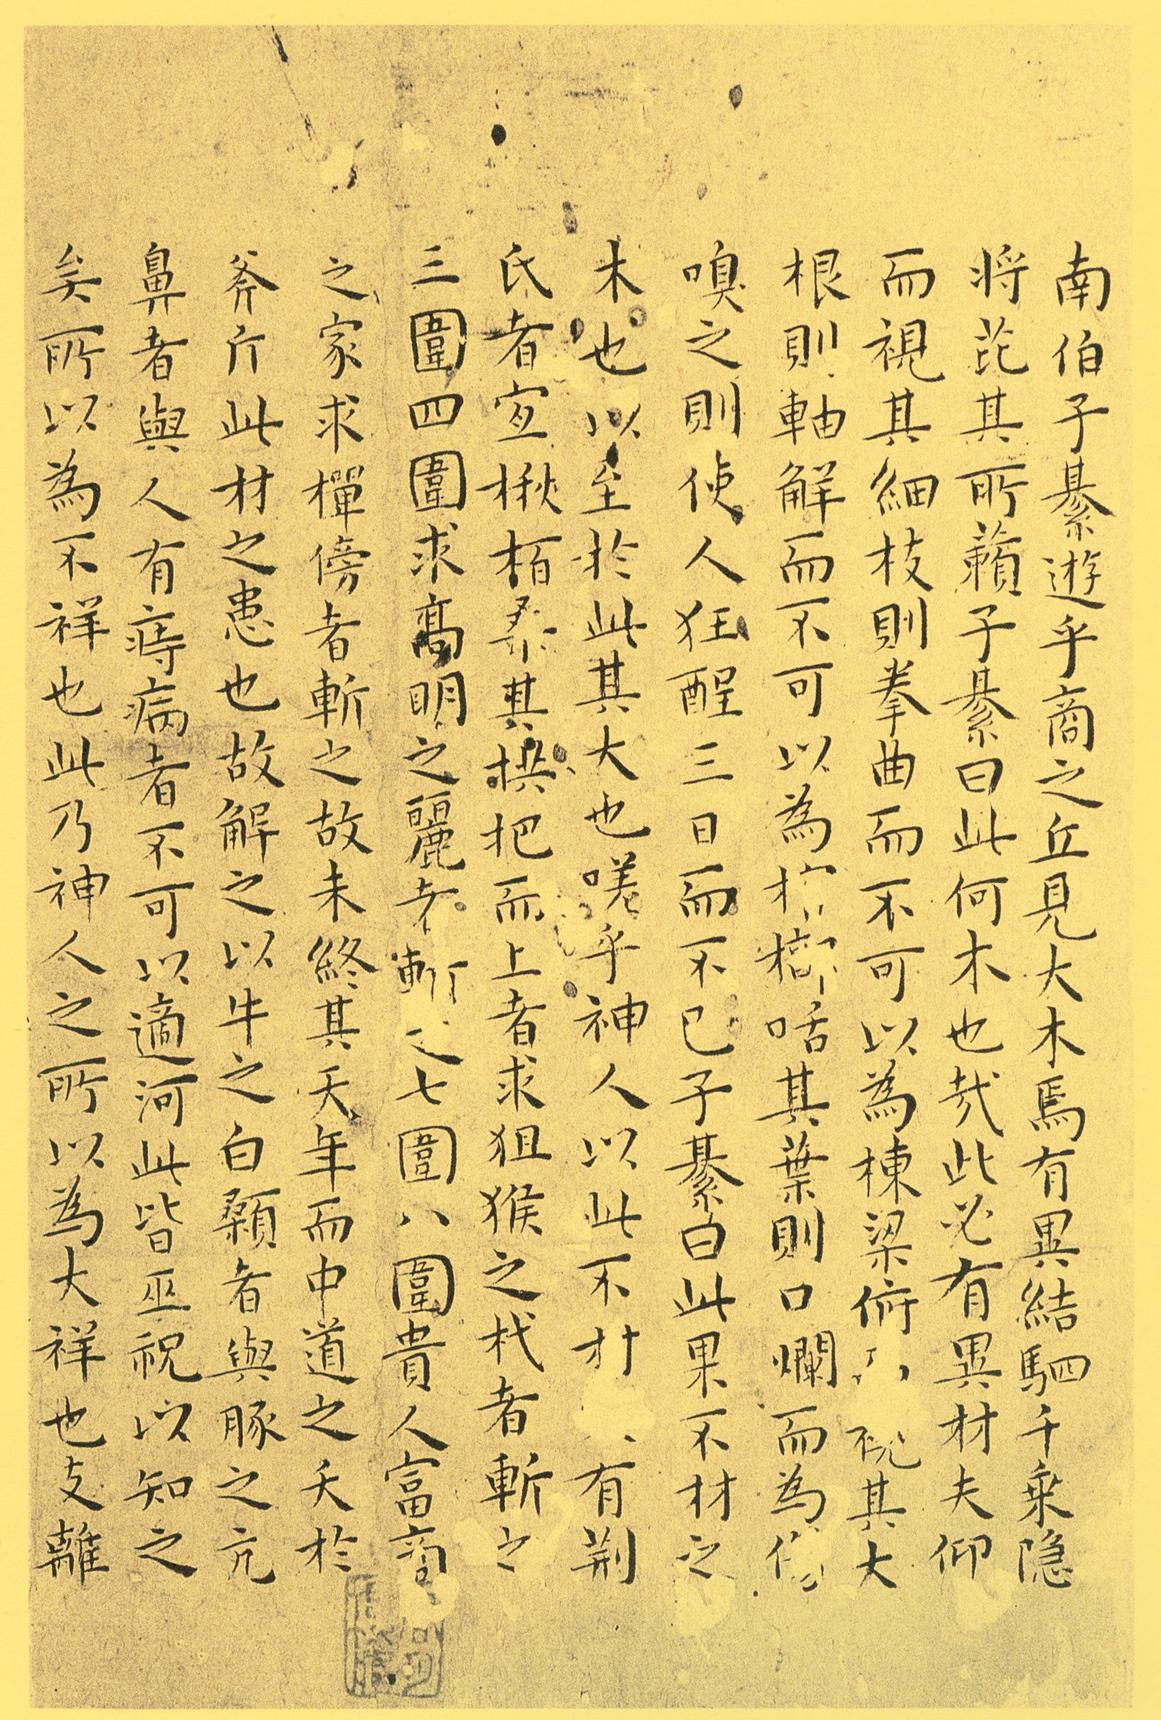 南伯子綦遊乎商之丘見大木焉有異結駟千乘隐
将芘其所藾子綦曰此何木也㦲此必有異材夫仰
而視其細枝則拳曲而不可以為棟梁俯而視其大
根則軸解而不可以為棺槨咶其葉則口爛而為傷
嗅之則使人狂酲三日而不已子綦曰此果不材之
木也以至於此其大也嗟乎神人以此不材有荆
氏者宜楸栢桑其拱把而上者求狙猴之杙者斬之
三圍四圍求髙明之麗者斬之七圍八圍貴人富商
之家求樿傍者斬之故未終其天年而中道之夭於
斧斤此材之患也故解之以牛之白顙者與豚之亢
鼻者與人有痔病者不可以適河此皆巫祝以知之
矣所以為不祥也此乃神人之所以為大祥也支離